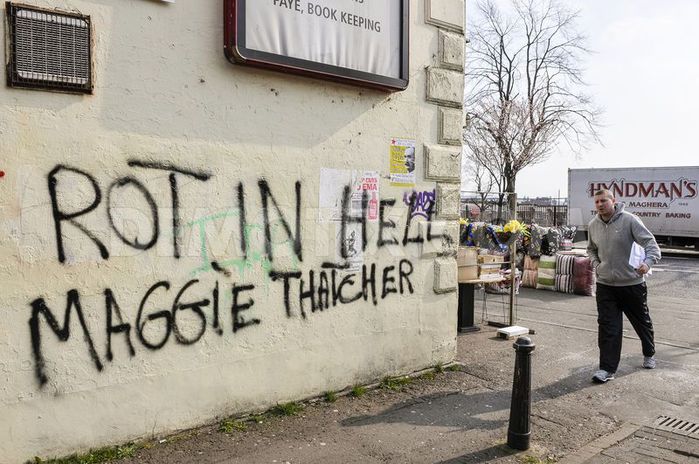 PAYE, BOOK KEEPING
ROT IN HELL
MAGGIE THATCHER
HYNDMAN'S
MAGHERA
COUNTRY BAKING